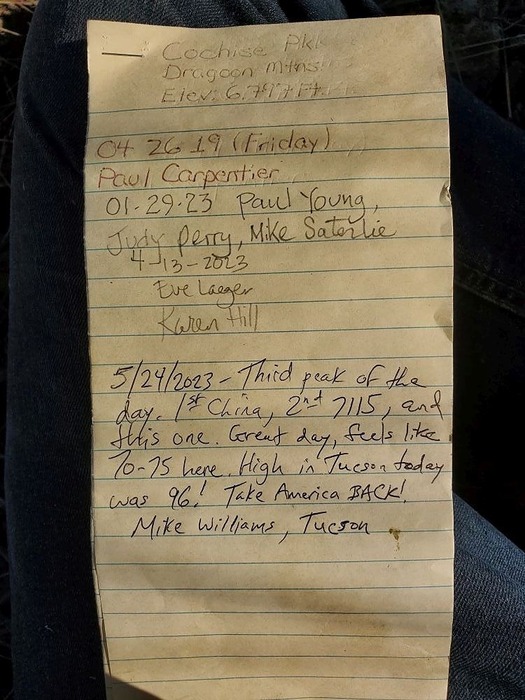 Cochise Pk.
Dragoon Mtns.
Elev. 6,
04 26 19 (Friday)
Paul Carpentier
01-29-23 Paul Young,
Judy Perry, Mike Saterlie
4-13-2023
Eve Laeger
Karen Hill
5/24/2023 - Third peak of the
day. 1st China, 2nd 7115, and
this one. Great day, feels like
70-75 here. High in Tucson today
was 96! Take America BACK!
Mike Williams, Tucson